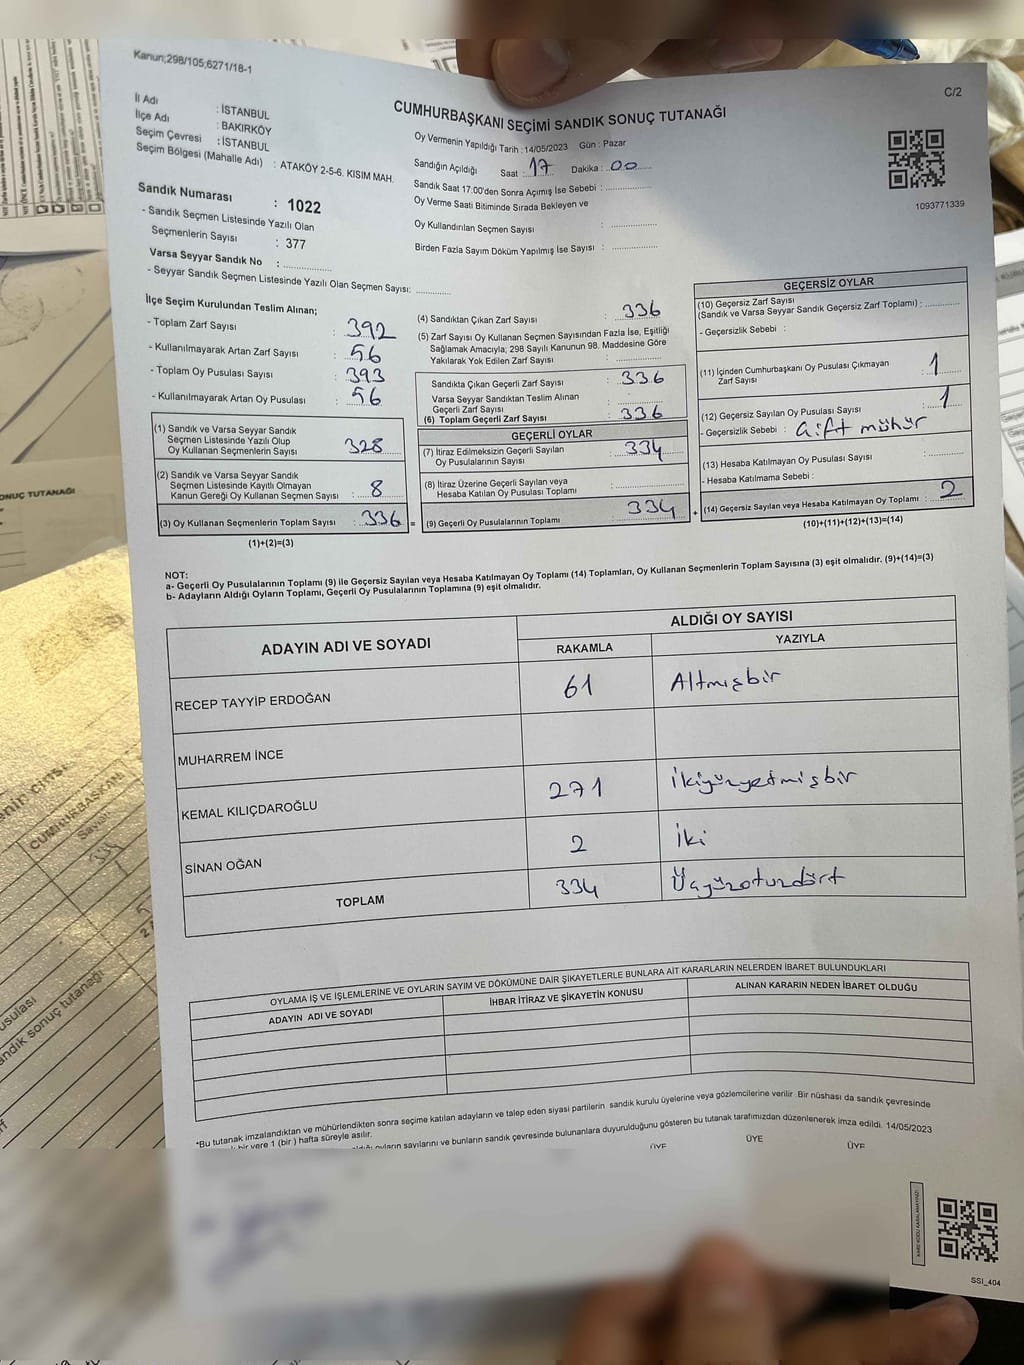 Kanun;298/105;6271/18-1
C/2
CUMHURBAŞKANI SEÇİMİ SANDIK SONUÇ TUTANAĞI
İl Adı : İSTANBUL
İlçe Adı : BAKIRKÖY
Seçim Çevresi : İSTANBUL
Seçim Bölgesi (Mahalle Adı) : ATAKÖY 2-5-6. KISIM MAH.
Sandık Numarası : 1022
- Sandık Seçmen Listesinde Yazılı Olan
Seçmenlerin Sayısı : 377
Varsa Seyyar Sandık No : ..............
- Seyyar Sandık Seçmen Listesinde Yazılı Olan Seçmen Sayısı: ............
Oy Vermenin Yapıldığı Tarih : 14/05/2023 Gün : Pazar
Sandığın Açıldığı Saat : 17 Dakika : 00
Sandık Saat 17:00'den Sonra Açımış İse Sebebi : ..............
Oy Verme Saati Bitiminde Sırada Bekleyen ve
Oy Kullandırılan Seçmen Sayısı : ..............
Birden Fazla Sayım Döküm Yapılmış İse Sayısı : ..............
1093771339
İlçe Seçim Kurulundan Teslim Alınan;
- Toplam Zarf Sayısı : 392
- Kullanılmayarak Artan Zarf Sayısı : 56
- Toplam Oy Pusulası Sayısı : 393
- Kullanılmayarak Artan Oy Pusulası : 56
(1) Sandık ve Varsa Seyyar Sandık
Seçmen Listesinde Yazılı Olup
Oy Kullanan Seçmenlerin Sayısı : 328
(2) Sandık ve Varsa Seyyar Sandık
Seçmen Listesinde Kayıtlı Olmayan
Kanun Gereği Oy Kullanan Seçmen Sayısı : 8
(3) Oy Kullanan Seçmenlerin Toplam Sayısı : 336 =
(1)+(2)=(3)
(4) Sandıktan Çıkan Zarf Sayısı : 336
(5) Zarf Sayısı Oy Kullanan Seçmen Sayısından Fazla İse, Eşitliği
Sağlamak Amacıyla, 298 Sayılı Kanunun 98. Maddesine Göre
Yakılarak Yok Edilen Zarf Sayısı : ..............
Sandıkta Çıkan Geçerli Zarf Sayısı : 336
Varsa Seyyar Sandıktan Teslim Alınan
Geçerli Zarf Sayısı : ..............
(6) Toplam Geçerli Zarf Sayısı : 336
GEÇERLİ OYLAR
(7) İtiraz Edilmeksizin Geçerli Sayılan
Oy Pusulalarının Sayısı : 334
(8) İtiraz Üzerine Geçerli Sayılan veya
Hesaba Katılan Oy Pusulası Toplamı : ..............
(9) Geçerli Oy Pusulalarının Toplamı : 334 +
GEÇERSİZ OYLAR
(10) Geçersiz Zarf Sayısı
(Sandık ve Varsa Seyyar Sandık Geçersiz Zarf Toplamı) : ..............
- Geçersizlik Sebebi :
(11) İçinden Cumhurbaşkanı Oy Pusulası Çıkmayan
Zarf Sayısı : 1
(12) Geçersiz Sayılan Oy Pusulası Sayısı : 1
- Geçersizlik Sebebi : Çift mühür
(13) Hesaba Katılmayan Oy Pusulası Sayısı : ..............
- Hesaba Katılmama Sebebi :
(14) Geçersiz Sayılan veya Hesaba Katılmayan Oy Toplamı : 2
(10)+(11)+(12)+(13)=(14)
NOT:
a- Geçerli Oy Pusulalarının Toplamı (9) ile Geçersiz Sayılan veya Hesaba Katılmayan Oy Toplamı (14) Toplamları, Oy Kullanan Seçmenlerin Toplam Sayısına (3) eşit olmalıdır. (9)+(14)=(3)
b- Adayların Aldığı Oyların Toplamı, Geçerli Oy Pusulalarının Toplamına (9) eşit olmalıdır.
ADAYIN ADI VE SOYADI
ALDIĞI OY SAYISI
RAKAMLA YAZIYLA
RECEP TAYYİP ERDOĞAN 61 Altmışbir
MUHARREM İNCE
KEMAL KILIÇDAROĞLU 271 İkiyüzyetmişbir
SİNAN OĞAN 2 İki
TOPLAM 334 Üçyüzotuzdört
OYLAMA İŞ VE İŞLEMLERİNE VE OYLARIN SAYIM VE DÖKÜMÜNE DAİR ŞİKAYETLERLE BUNLARA AİT KARARLARIN NELERDEN İBARET BULUNDUKLARI
ADAYIN ADI VE SOYADI İHBAR İTİRAZ VE ŞİKAYETİN KONUSU ALINAN KARARIN NEDEN İBARET OLDUĞU
*Bu tutanak imzalandıktan ve mühürlendikten sonra seçime katılan adayların ve talep eden siyasi partilerin sandık kurulu üyelerine veya gözlemcilerine verilir. Bir nüshası da sandık çevresinde
bir yere 1 (bir) hafta süreyle asılır.
oyların sayılarını ve bunların sandık çevresinde bulunanlara duyurulduğunu gösteren bu tutanak tarafımızdan düzenlenerek imza edildi. 14/05/2023
ÜYE ÜYE ÜYE
SSI_404
ONUÇ TUTANAĞI
CUMHURBAŞKANI
Sayısı
334
usulası
sandık sonuç tutanağı